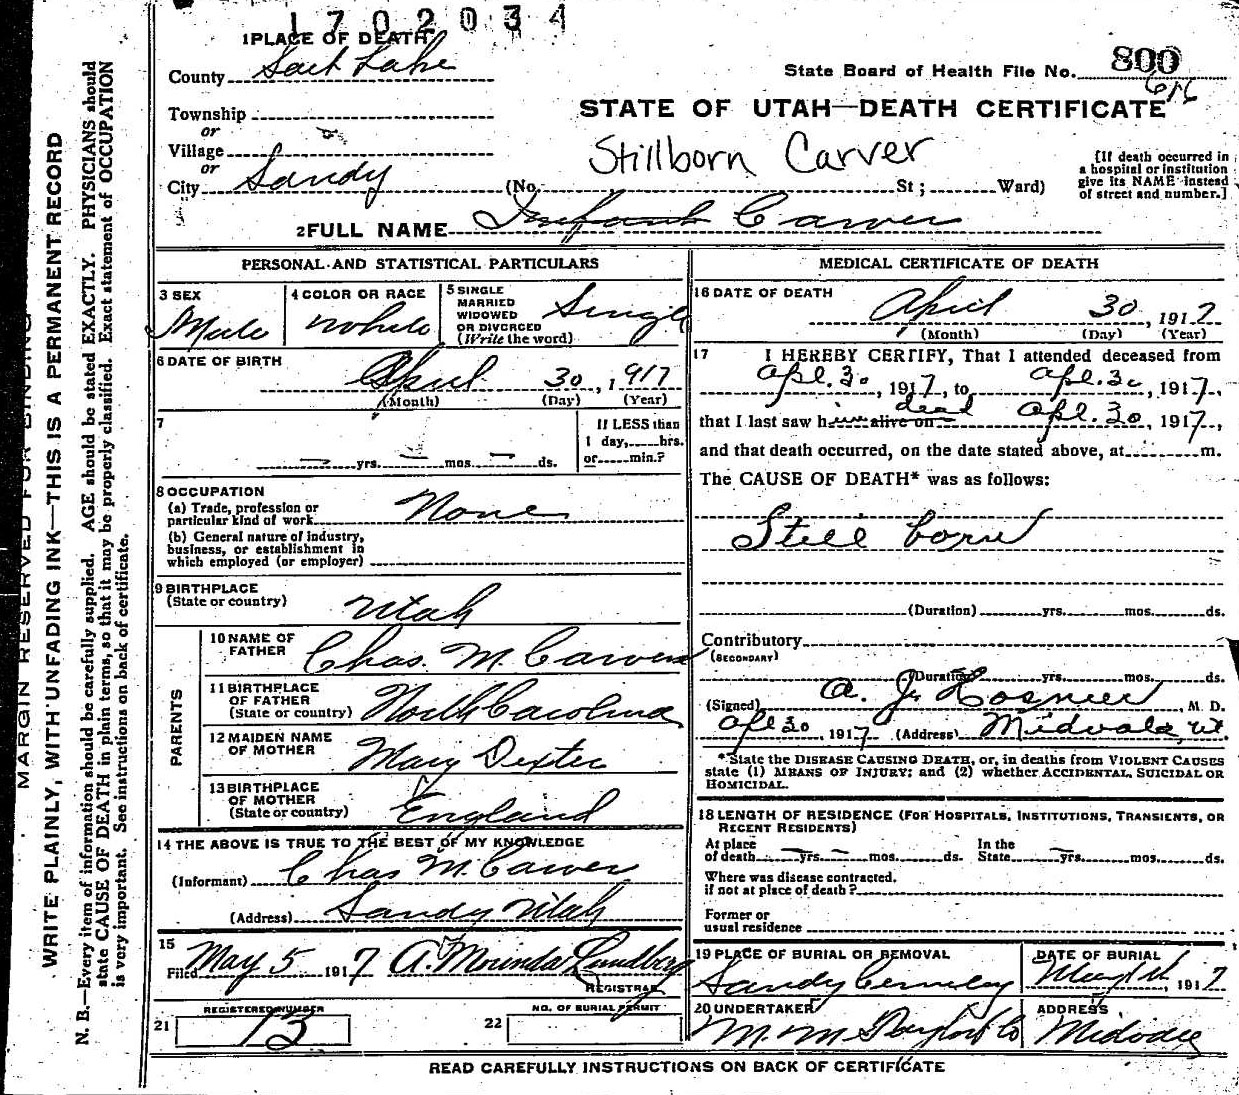 1702034
1 PLACE OF DEATH
County Salt Lake
State Board of Health File No. 800
616
Township
or
Village
or
City Sandy
STATE OF UTAH—DEATH CERTIFICATE
Stillborn Carver
(No. St ; Ward)
[If death occurred in
a hospital or institution
give its NAME instead
of street and number.]
2 FULL NAME Infant Carver
PERSONAL AND STATISTICAL PARTICULARS
3 SEX
Male
4 COLOR OR RACE
white
5 SINGLE
MARRIED
WIDOWED
OR DIVORCED
(Write the word)
Single
6 DATE OF BIRTH
April 30, 1917
(Month) (Day) (Year)
7
— yrs. — mos. — ds.
If LESS than
1 day, hrs.
or min.?
8 OCCUPATION
(a) Trade, profession or
particular kind of work None
(b) General nature of industry,
business, or establishment in
which employed (or employer)
9 BIRTHPLACE
(State or country) Utah
PARENTS
10 NAME OF
FATHER Chas. M. Carver
11 BIRTHPLACE
OF FATHER
(State or country) North Carolina
12 MAIDEN NAME
OF MOTHER Mary Dexter
13 BIRTHPLACE
OF MOTHER
(State or country) England
14 THE ABOVE IS TRUE TO THE BEST OF MY KNOWLEDGE
(Informant) Chas M. Carver
(Address) Sandy Utah
15
Filed May 5 1917 A. Mourinda Lundberg
REGISTRAR
REGISTERED NUMBER
21 13
NO. OF BURIAL PERMIT
22
MEDICAL CERTIFICATE OF DEATH
16 DATE OF DEATH
April 30, 1917
(Month) (Day) (Year)
17 I HEREBY CERTIFY, That I attended deceased from
Apl. 30, 1917, to Apl. 30, 1917,
that I last saw him alive on dead Apl. 30, 1917,
and that death occurred, on the date stated above, at m.
The CAUSE OF DEATH* was as follows:
Still born
(Duration) yrs. mos. ds.
Contributory
(SECONDARY)
(Duration) yrs. mos. ds.
(Signed) A. J. Hosmer, M. D.
Apl 30, 1917 (Address) Midvale, Ut.
* State the DISEASE CAUSING DEATH, or, in deaths from VIOLENT CAUSES
state (1) MEANS OF INJURY; and (2) whether ACCIDENTAL, SUICIDAL OR
HOMICIDAL.
18 LENGTH OF RESIDENCE (FOR HOSPITALS, INSTITUTIONS, TRANSIENTS, OR
RECENT RESIDENTS)
At place
of death — yrs. — mos. ds. In the
State — yrs. mos. ds.
Where was disease contracted,
if not at place of death ?
Former or
usual residence
19 PLACE OF BURIAL OR REMOVAL
Sandy Cemetery
DATE OF BURIAL
May 1st, 1917
20 UNDERTAKER
ADDRESS
Midvale
READ CAREFULLY INSTRUCTIONS ON BACK OF CERTIFICATE
MARGIN RESERVED FOR BINDING
WRITE PLAINLY, WITH UNFADING INK—THIS IS A PERMANENT RECORD
N. B.—Every item of information should be carefully supplied. AGE should be stated EXACTLY. PHYSICIANS should
state CAUSE OF DEATH in plain terms, so that it may be properly classified. Exact statement of OCCUPATION
is very important. See instructions on back of certificate.